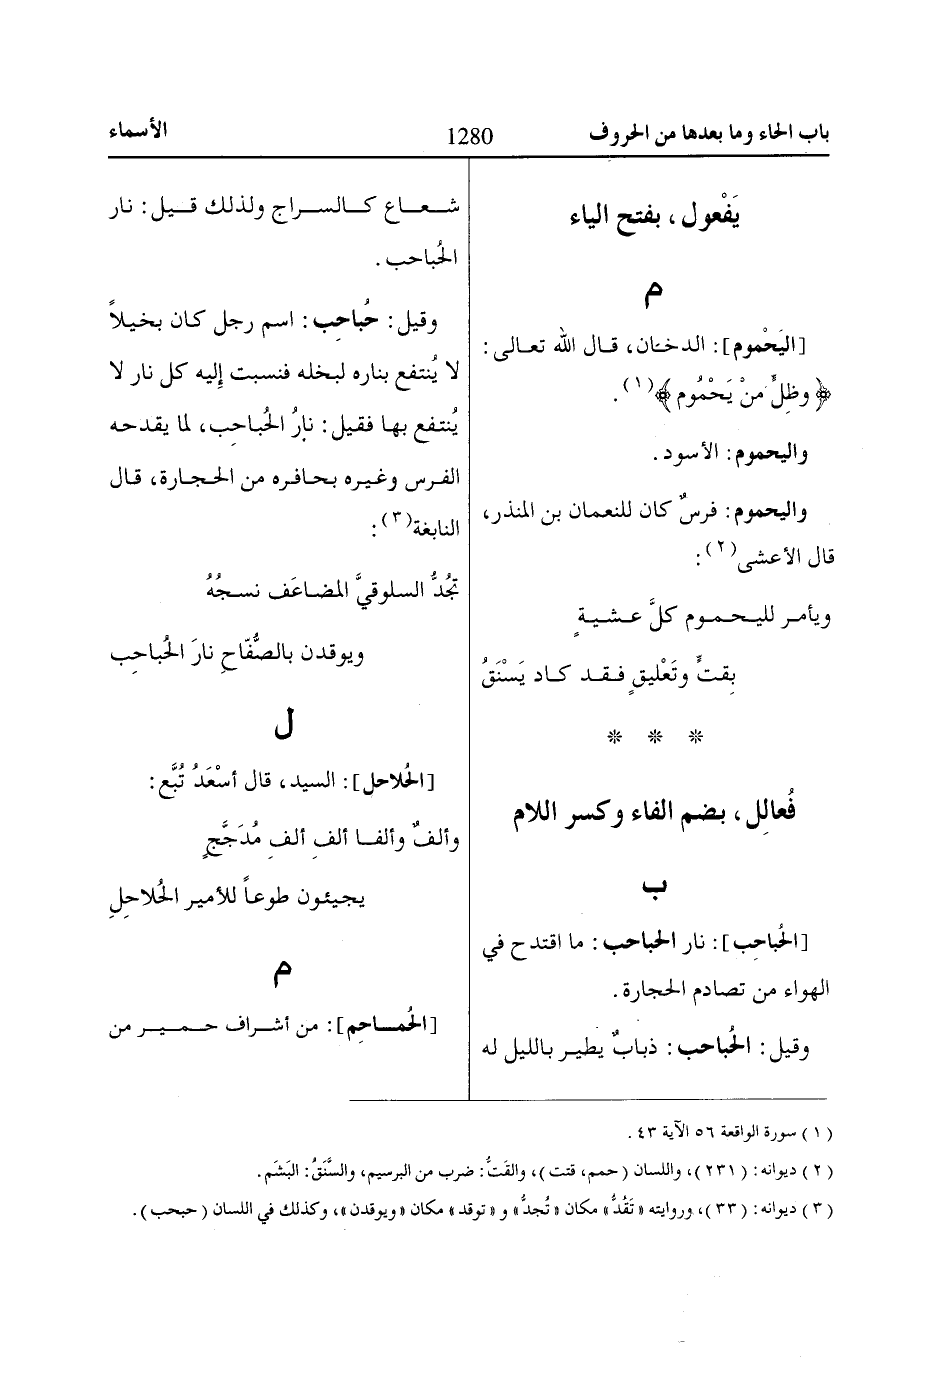 باب الحاء وما بعدها من الحروف 1280 الأسماء
يَفْعول ، بفتح الياء
م
[اليَحْموم]: الدخان، قال الله تعالى:
﴿ وظِلٍّ مِنْ يَحْمُوم ﴾(١).
واليحموم: الأسود.
واليحموم: فرسٌ كان للنعمان بن المنذر،
قال الأعشى(٢):
ويأمر لليحموم كلَّ عشيةٍ
بقتٍّ وتَعْليقٍ فقد كاد يَسْنَقُ
* * *
فُعالِل، بضم الفاء وكسر اللام
ب
[الحُباحِب]: نار الحباحب: ما اقتدح في
الهواء من تصادم الحجارة.
وقيل: الحُباحب: ذبابٌ يطير بالليل له
شعاع كالسراج ولذلك قيل: نار
الحُباحب.
وقيل: حُباحِب: اسم رجل كان بخيلاً
لا يُنتفع بناره لبخله فنسبت إليه كل نار لا
يُنتفع بها فقيل: نارُ الحُباحب، لما يقدحه
الفرس وغيره بحافره من الحجارة، قال
النابغة(٣):
تجُدُّ السلوقيَّ المضاعَف نسجُهُ
ويوقدن بالصُّفّاحِ نارَ الحُباحِب
ل
[الحُلاحل]: السيد، قال أسْعَدُ تُبَّع:
وألفٌ وألفا ألفِ ألفِ مُدَجَّجٍ
يجيئون طوعاً للأمير الحُلاحلِ
م
[الحُماحِم]: من أشراف حمير من
(١) سورة الواقعة ٥٦ الآية ٤٣ .
(٢) ديوانه: (٢٣١)، واللسان (حمم، قتت)، والقَتُّ: ضرب من البرسيم، والسَّنَقُ: البَشَم.
(٣) ديوانه: (٣٣)، وروايته «تَقُدُّ» مكان «تُجدُّ» و «توقد» مكان «ويوقدن»، وكذلك في اللسان (حبحب).